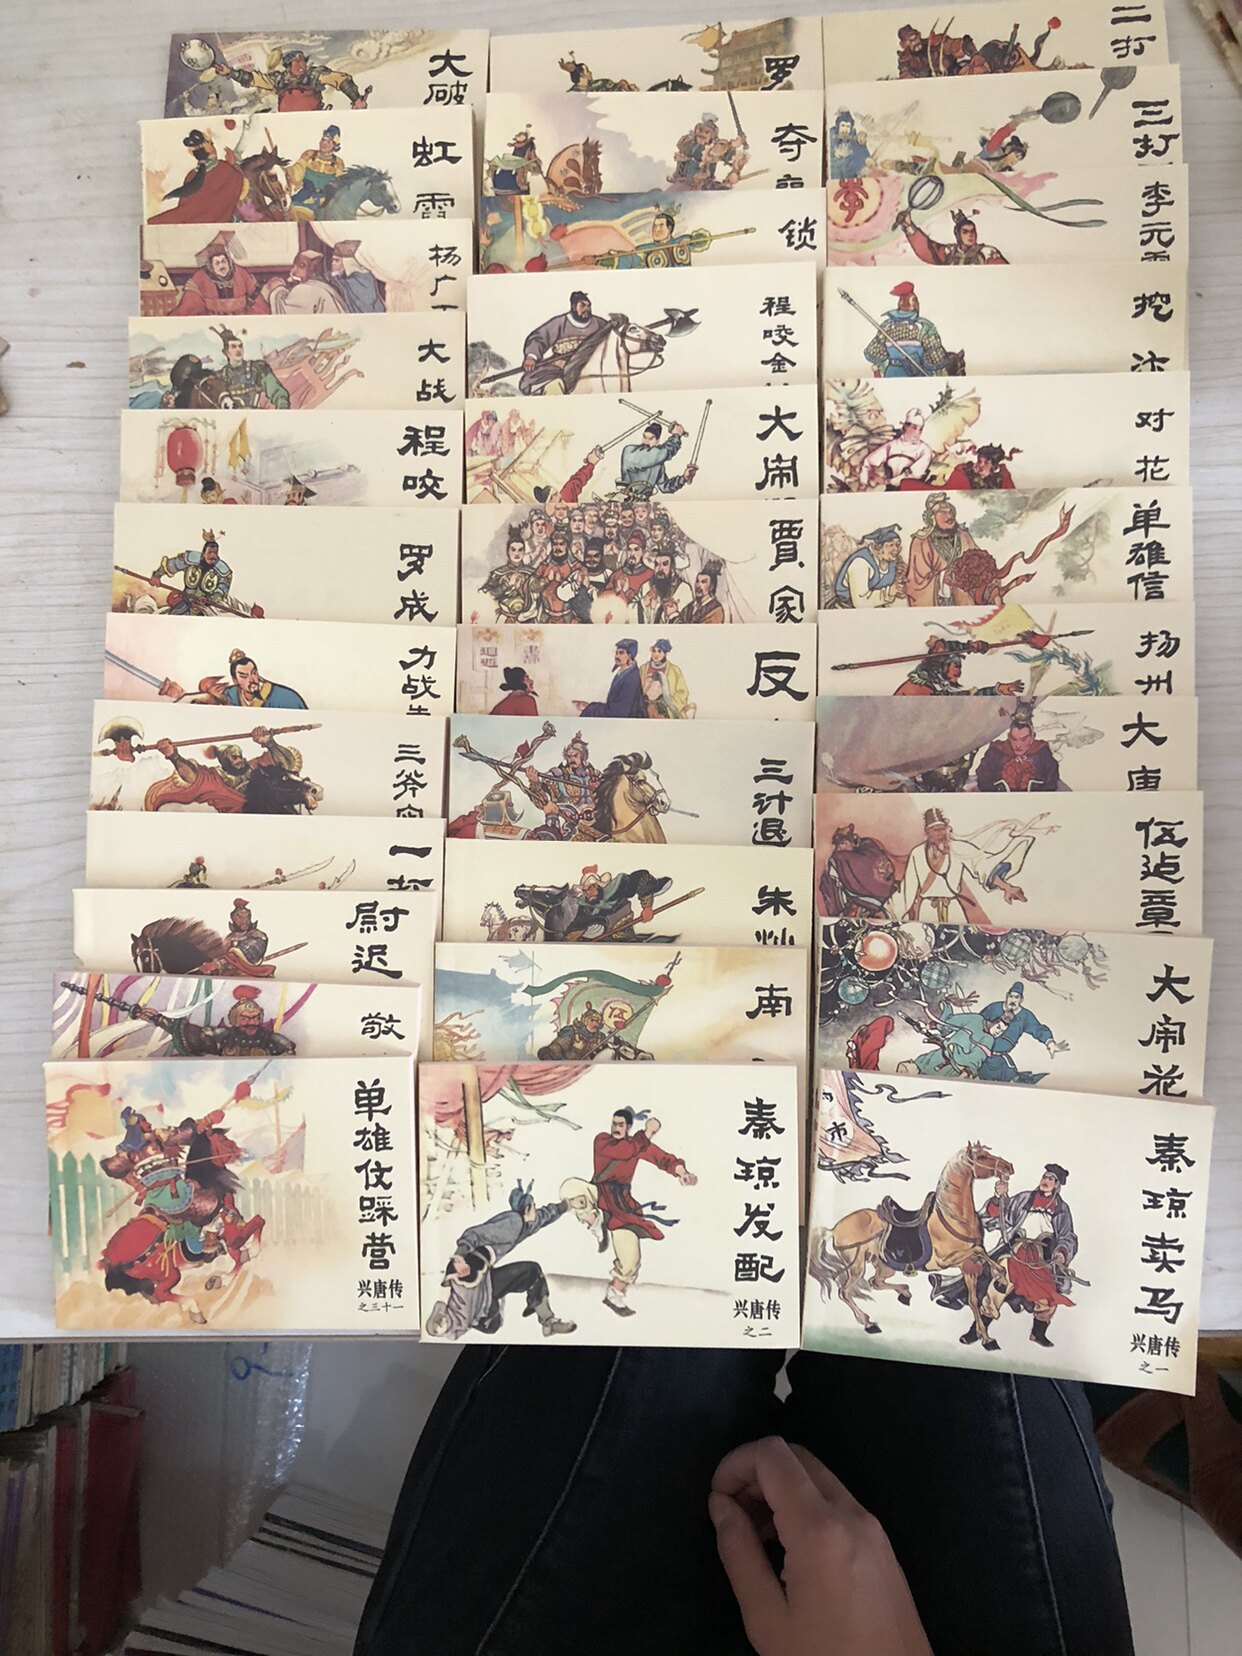 大破
虹霓
杨广
大战
程咬
罗成
力战
三斧
一打
尉迟
敬
单雄信踩营
兴唐传
之三十一
罗
夺
锁
程咬金
大闹
贾家
反
三计退
朱灿
南
秦琼发配
兴唐传
之二
二打
三打
李元
挖汴
对花
单雄信
扬州
大唐
伍迠章
大闹花
市
秦琼卖马
兴唐传
之一